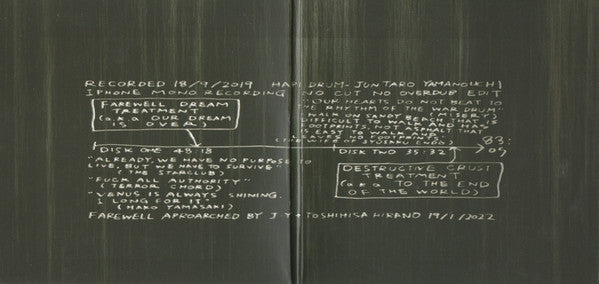 RECORDED 18/9/2019 HAPI DRUM-JUNTARO YAMANOUCHI
IPHONE MONO RECORDING NO CUT NO OVERDUB EDIT
FAREWELL DREAM
TREATMENT
(a.k.a OUR DREAM
IS OVER)
"OUR HEARTS DO NOT BEAT TO
THE RHYTHM OF THE WAR DRUM"
(MISERY)
"WALK ON SANDY BEACH THAT IS
DIFFICULT TO WALK AND HAS
FOOTPRINTS, NOT ASPHALT THAT
IS EASY TO WALK AND
LEAVES NO FOOTPRINTS"
(THE WIFE OF SYUSAKU ENDO)
DISK ONE 48:18
DISK TWO 35:32
83:
09
"ALREADY, WE HAVE NO PURPOSE TO
LIVE, BUT WE HAVE TO SURVIVE"
(THE STARCLUB)
"FUCK ALL AUTHORITY"
(TERROR CHORD)
"VENUS IS ALWAYS SHINING.
I LONG FOR IT"
(HAKO YAMASAKI)
DESTRUCTIVE CRUST
TREATMENT
(a.k.a TO THE END
OF THE WORLD)
FAREWELL APROARCHED BY J.Y + TOSHIHISA HIRANO 19/1/2022